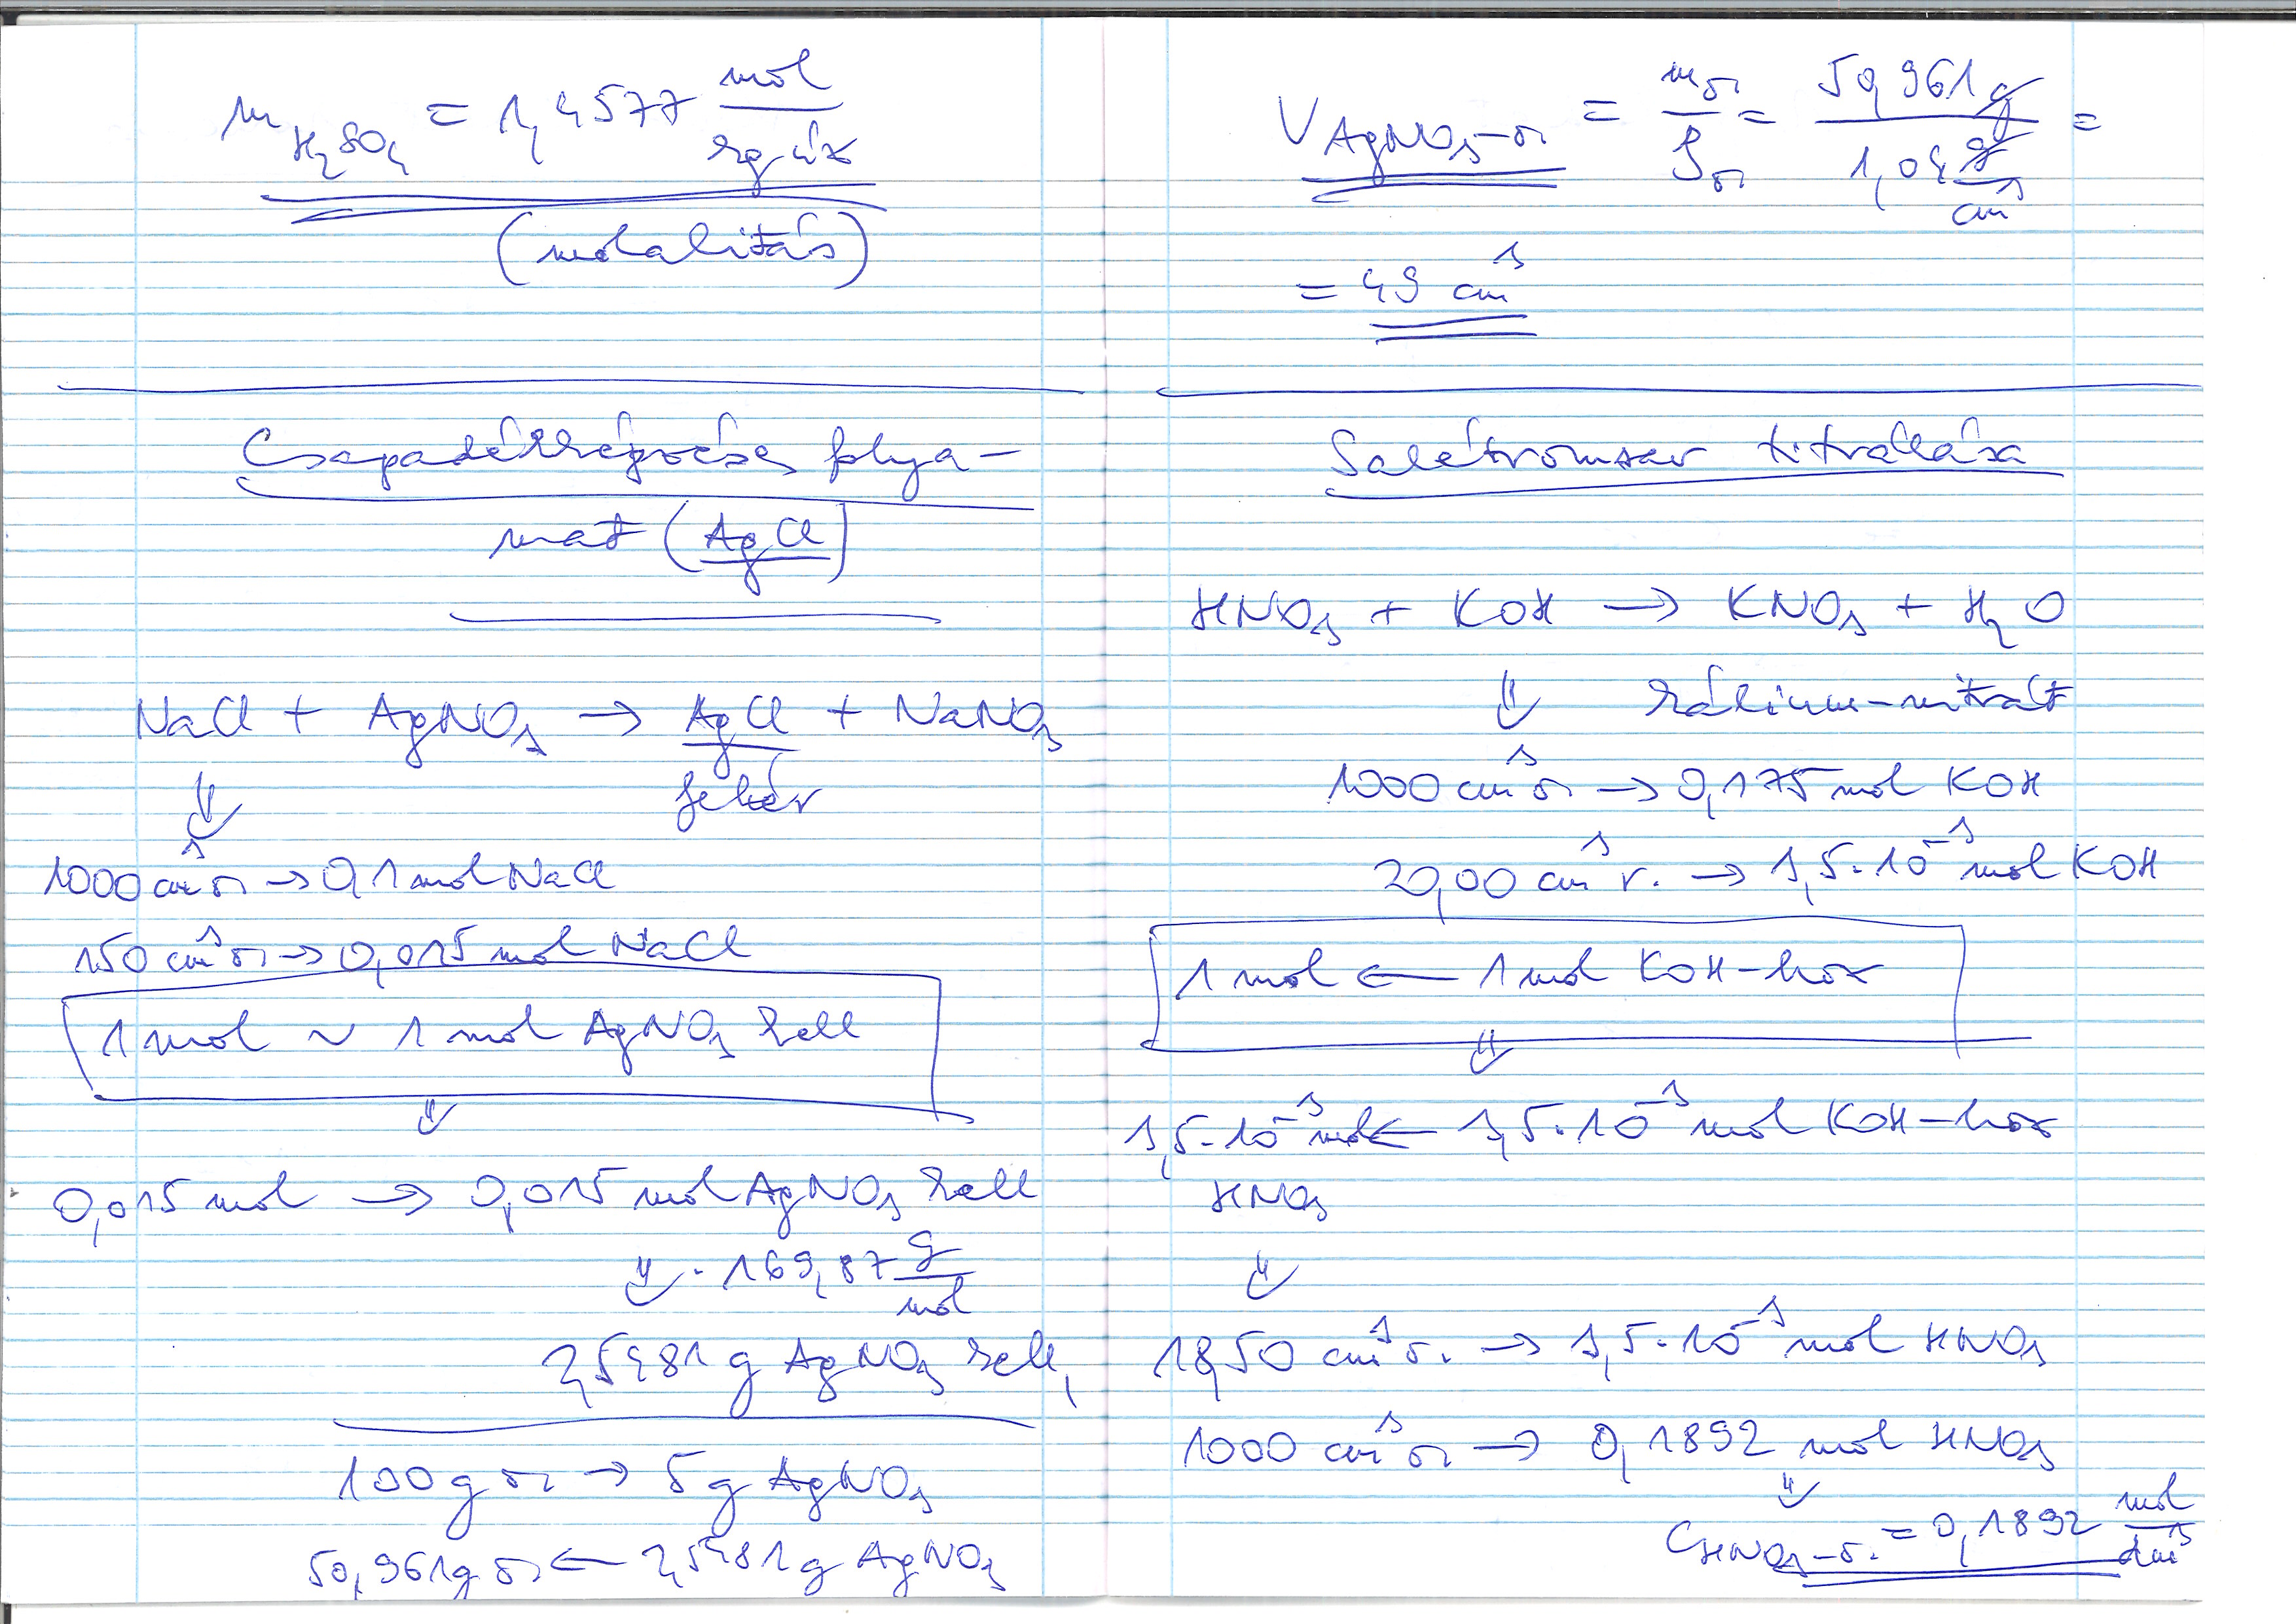 m H₂SO₄ = 1,4577 mol/kg víz
(molalitás)
Csapadékképzéses folya-
mat (AgCl)
NaCl + AgNO₃ → AgCl + NaNO₃
⇓ fehér
1000 cm³ o. → 0,1 mol NaCl
150 cm³ o. → 0,015 mol NaCl
1 mol ~ 1 mol AgNO₃ kell
⇓
0,015 mol → 0,015 mol AgNO₃ kell
⇓ · 169,87 g/mol
2,5481 g AgNO₃ kell,
100 g o. → 5 g AgNO₃
50,961 g o. ← 2,5481 g AgNO₃
V AgNO₃-o. = m o./ρ o. = 50,961 g / 1,04 g/cm³ =
= 49 cm³
Salétromsav titrálása
HNO₃ + KOH → KNO₃ + H₂O
⇓ kálium-nitrát
1000 cm³ o. → 0,175 mol KOH
20,00 cm³ r. → 3,5·10⁻³ mol KOH
1 mol ← 1 mol KOH-hoz
⇓
3,5·10⁻³ mol ← 3,5·10⁻³ mol KOH-hoz
HNO₃
⇓
18,50 cm³ o. → 3,5·10⁻³ mol HNO₃
1000 cm³ o. → 0,1892 mol HNO₃
⇓
c HNO₃-o. = 0,1892 mol/dm³